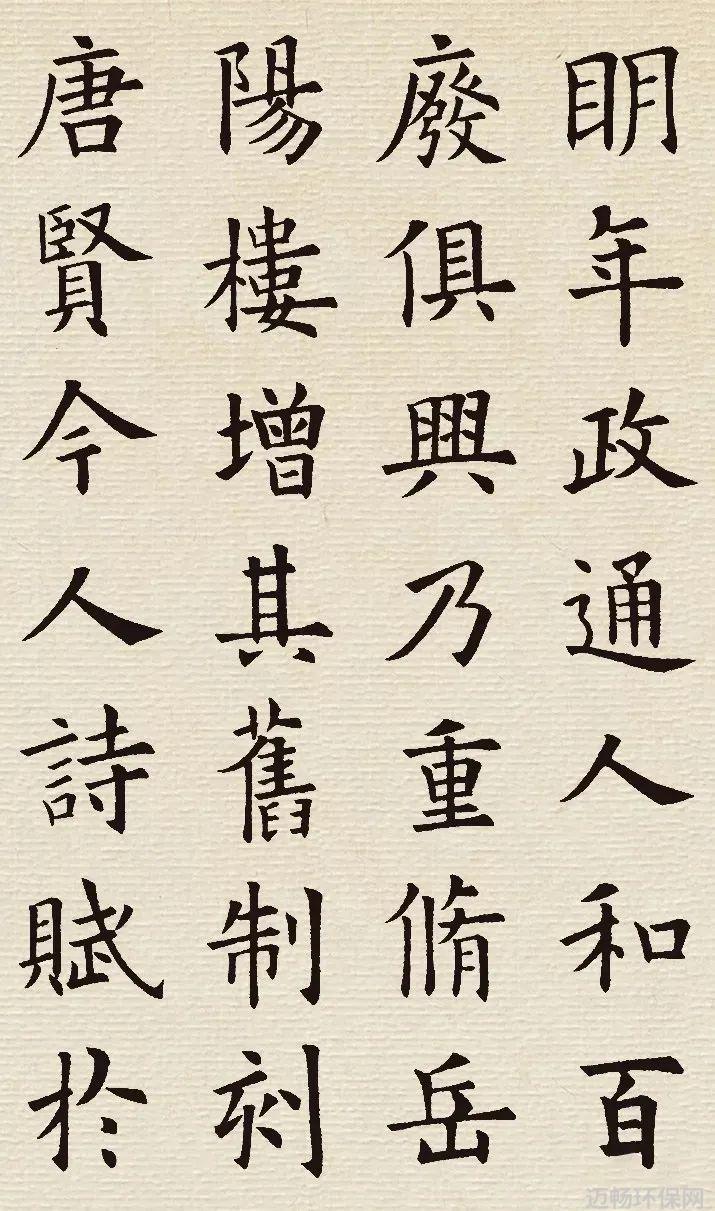 明年政通人和百
廢俱興乃重脩岳
陽樓增其舊制刻
唐賢今人詩賦於
迈畅环保网